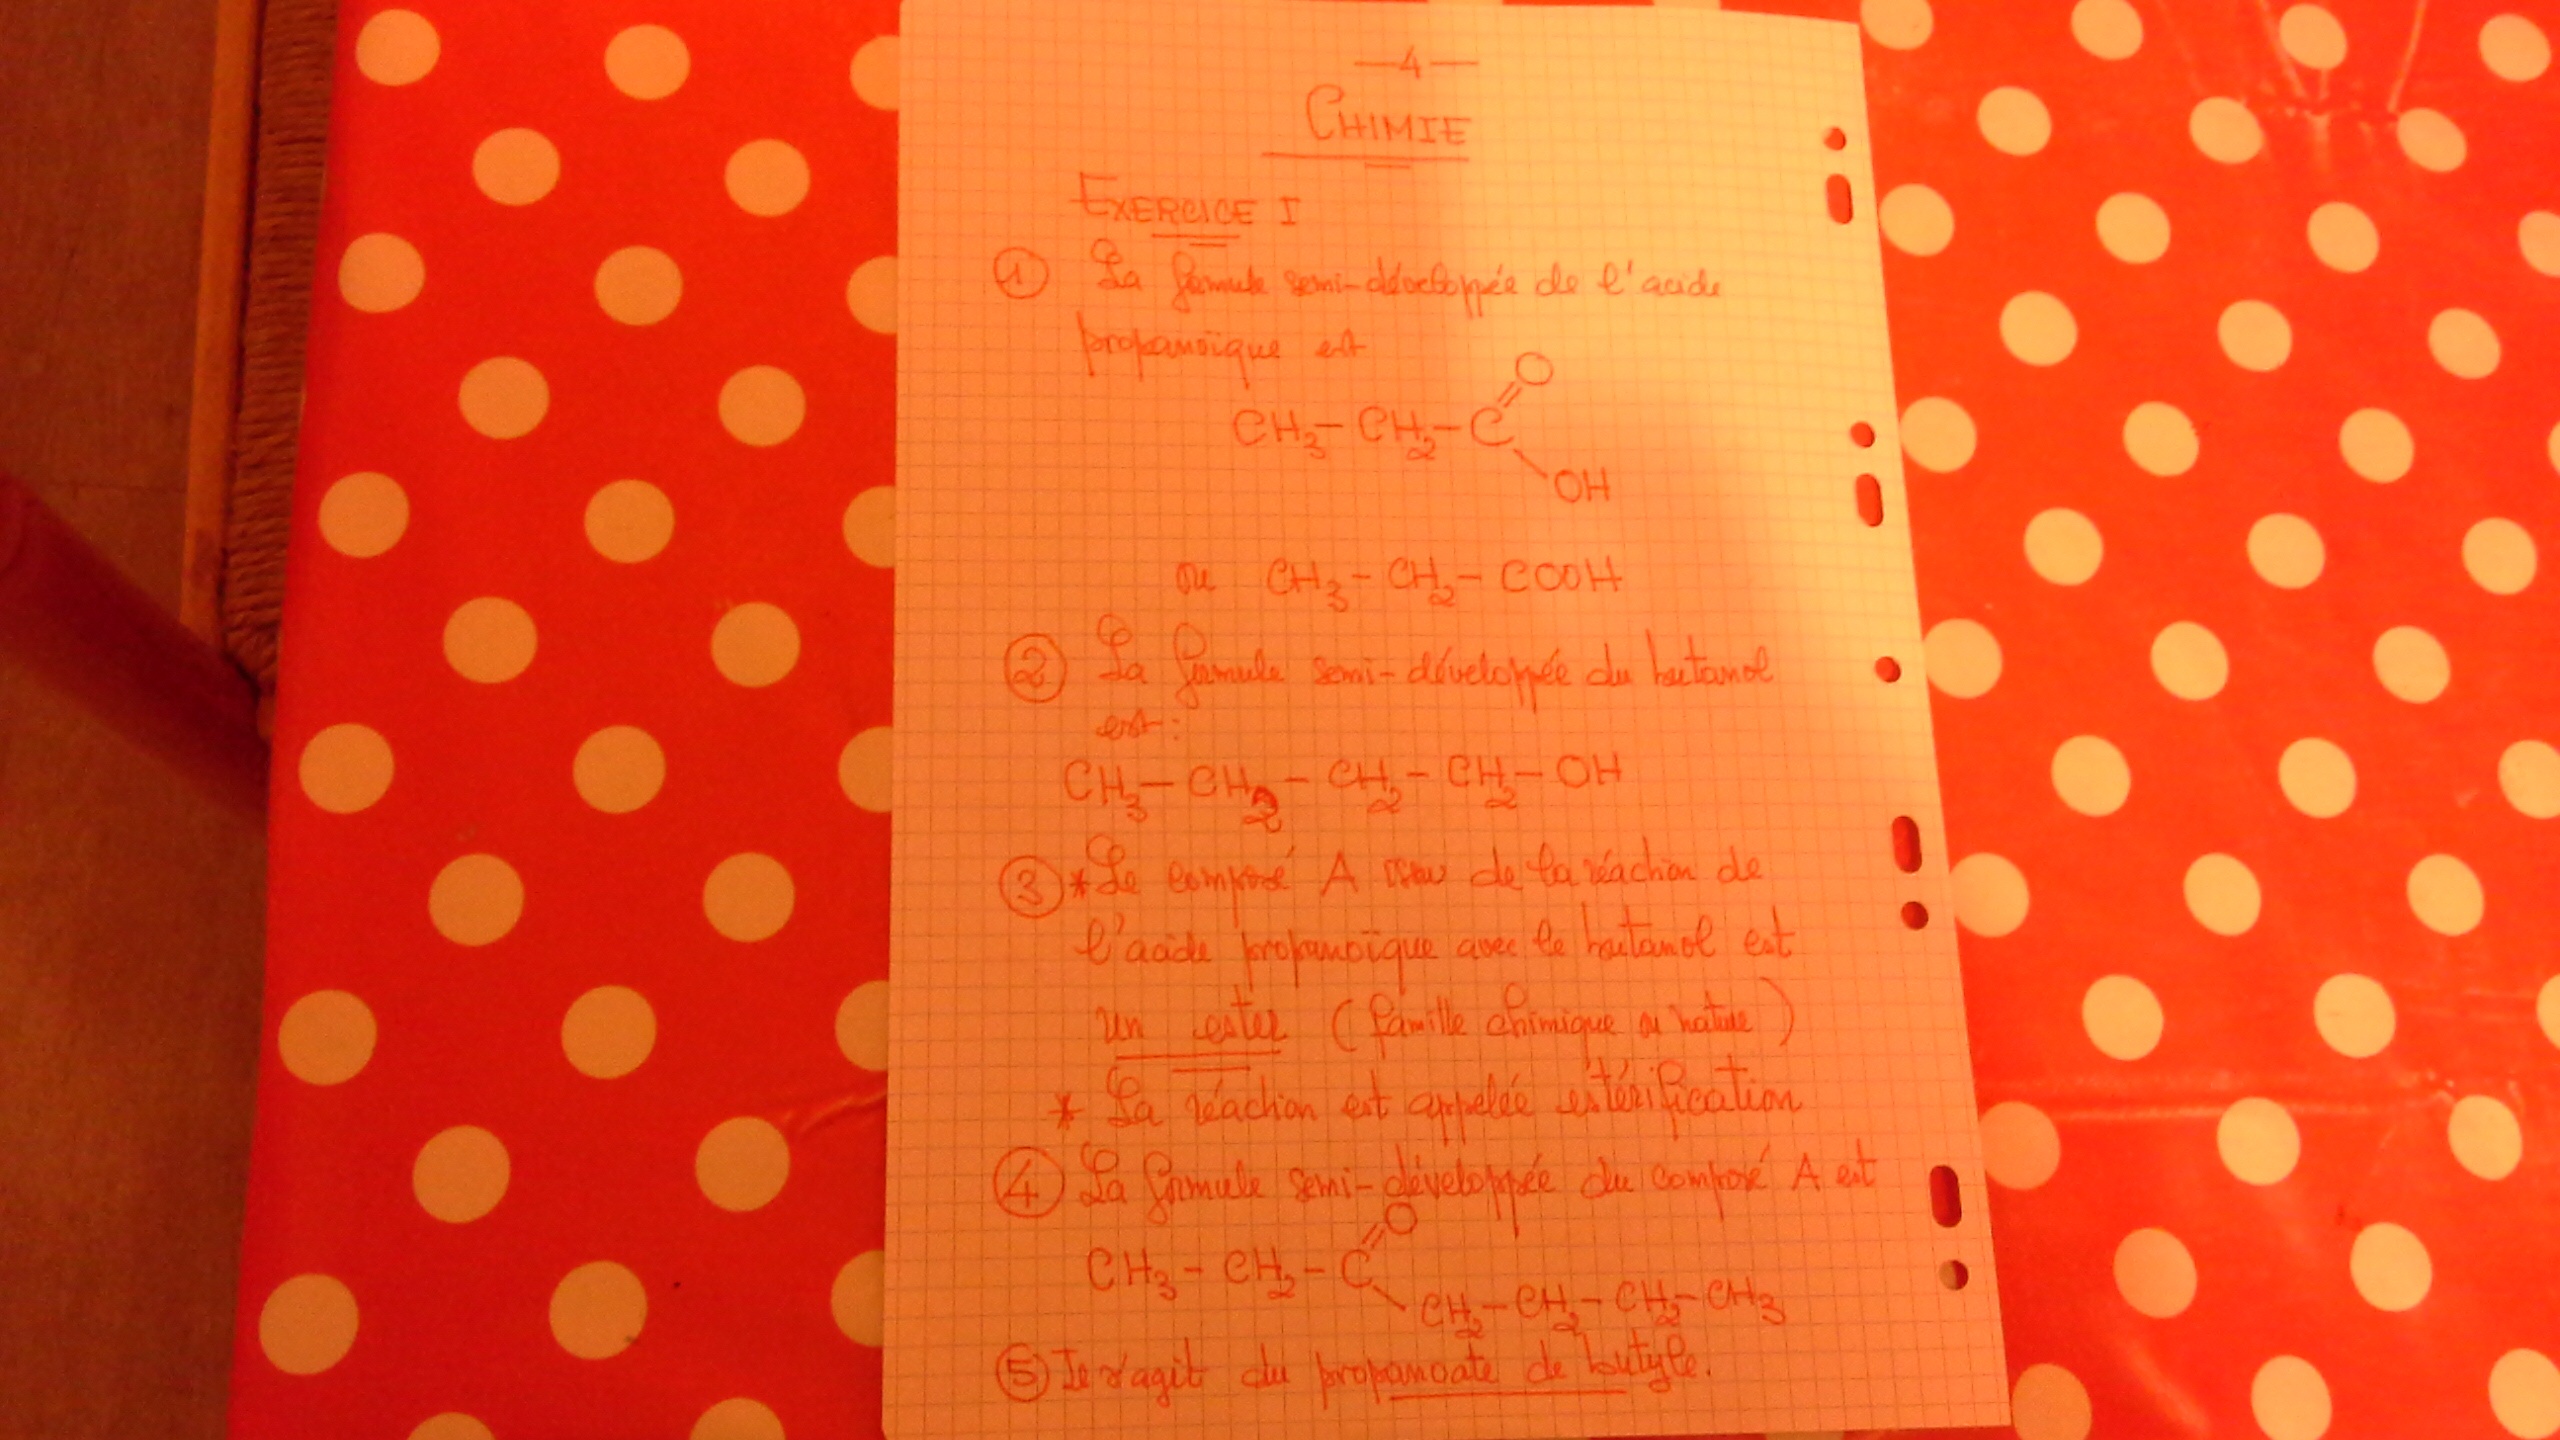 —4—
CHIMIE
EXERCICE I
① La formule semi-développée de l'acide
propanoïque est
O
CH3-CH2-C
OH
ou CH3-CH2-COOH
② La formule semi-développée du butanol
est:
CH3-CH2-CH2-CH2-OH
③ *Le composé A issu de la réaction de
l'acide propanoïque avec le butanol est
un ester (famille chimique ou nature)
* La réaction est appelée estérification
④ La formule semi-développée du composé A est
O
CH3-CH2-C
CH2-CH2-CH2-CH3
⑤ Il s'agit du propanoate de butyle.